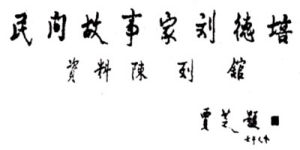 民间故事家刘德培
資料陳列舘
賈芝题